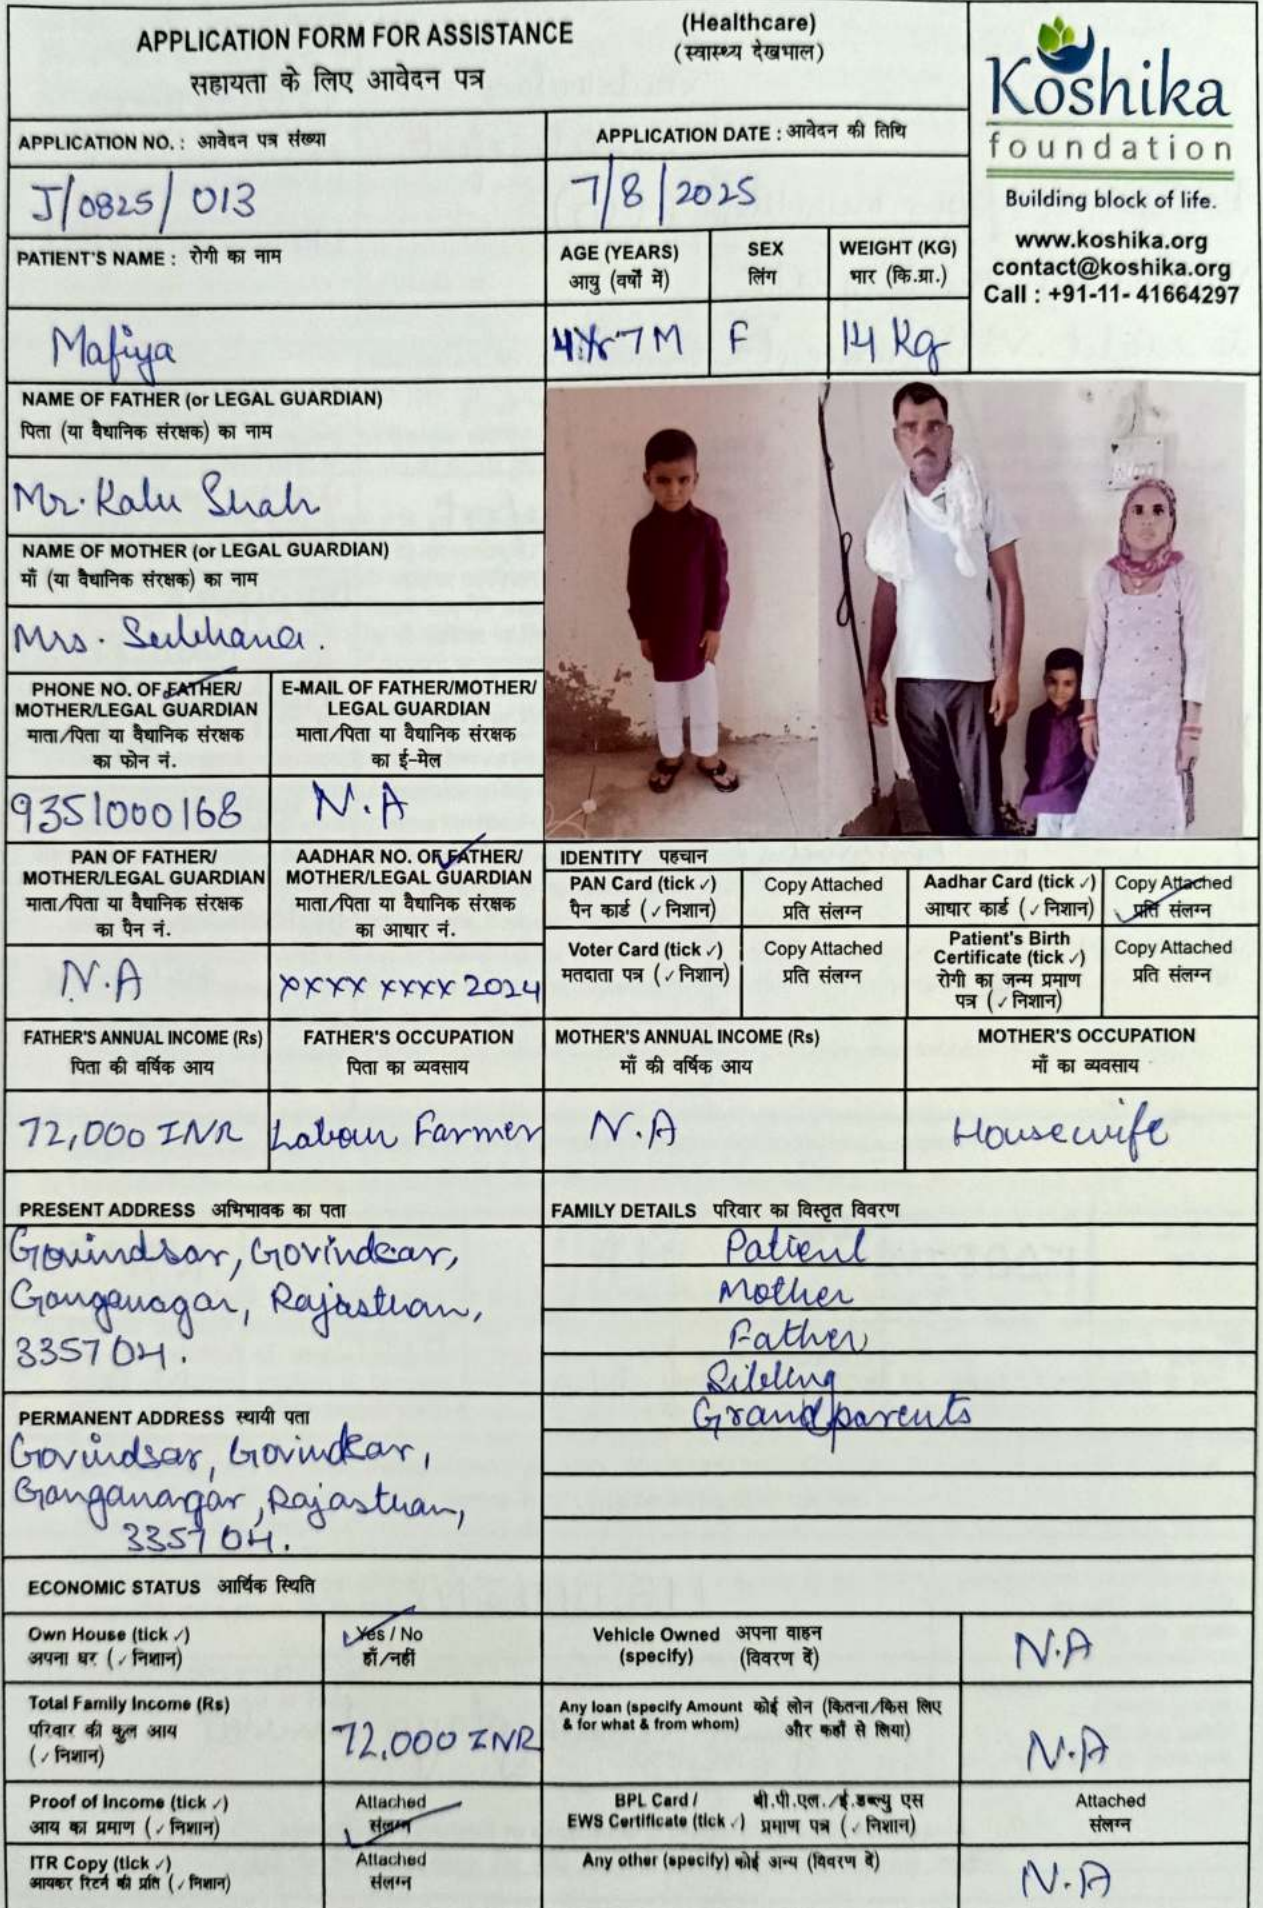 APPLICATION FORM FOR ASSISTANCE
सहायता के लिए आवेदन पत्र
(Healthcare)
(स्वास्थ्य देखभाल)
Koshika
foundation
Building block of life.
www.koshika.org
contact@koshika.org
Call : +91-11- 41664297
APPLICATION NO. : आवेदन पत्र संख्या
APPLICATION DATE : आवेदन की तिथि
J/0825/013
7/8/2025
PATIENT'S NAME : रोगी का नाम
AGE (YEARS)
आयु (वर्षों में)
SEX
लिंग
WEIGHT (KG)
भार (कि.ग्रा.)
Mafiya
4Yr 7M
F
14 Kg
NAME OF FATHER (or LEGAL GUARDIAN)
पिता (या वैधानिक संरक्षक) का नाम
Mr. Kalu Shah
NAME OF MOTHER (or LEGAL GUARDIAN)
माँ (या वैधानिक संरक्षक) का नाम
Mrs.
PHONE NO. OF FATHER/
MOTHER/LEGAL GUARDIAN
माता/पिता या वैधानिक संरक्षक
का फोन नं.
E-MAIL OF FATHER/MOTHER/
LEGAL GUARDIAN
माता/पिता या वैधानिक संरक्षक
का ई-मेल
9351000168
N.A
PAN OF FATHER/
MOTHER/LEGAL GUARDIAN
माता/पिता या वैधानिक संरक्षक
का पैन नं.
AADHAR NO. OF FATHER/
MOTHER/LEGAL GUARDIAN
माता/पिता या वैधानिक संरक्षक
का आधार नं.
N.A
xxxx xxxx 2024
IDENTITY पहचान
PAN Card (tick ✓)
पैन कार्ड (✓ निशान)
Copy Attached
प्रति संलग्न
Aadhar Card (tick ✓)
आधार कार्ड (✓ निशान)
Copy Attached
प्रति संलग्न
Voter Card (tick ✓)
मतदाता पत्र (✓ निशान)
Copy Attached
प्रति संलग्न
Patient's Birth
Certificate (tick ✓)
रोगी का जन्म प्रमाण
पत्र (✓ निशान)
Copy Attached
प्रति संलग्न
FATHER'S ANNUAL INCOME (Rs)
पिता की वार्षिक आय
FATHER'S OCCUPATION
पिता का व्यवसाय
MOTHER'S ANNUAL INCOME (Rs)
माँ की वार्षिक आय
MOTHER'S OCCUPATION
माँ का व्यवसाय
72,000 INR
Labour Farmer
N.A
Housewife
PRESENT ADDRESS अभिभावक का पता
Govindsar, Govindsar,
Ganganagar, Rajasthan,
335704.
FAMILY DETAILS परिवार का विस्तृत विवरण
Patient
Mother
Father
Sibling
Grandparents
PERMANENT ADDRESS स्थायी पता
Govindsar, Govindsar,
Ganganagar, Rajasthan,
335704.
ECONOMIC STATUS आर्थिक स्थिति
Own House (tick ✓)
अपना घर (✓ निशान)
Yes / No
हाँ/नहीं
Vehicle Owned अपना वाहन
(specify) (विवरण दें)
N.A
Total Family Income (Rs)
परिवार की कुल आय
(✓ निशान)
72,000 INR
Any loan (specify Amount कोई लोन (कितना/किस लिए
& for what & from whom) और कहाँ से लिया)
N.A
Proof of Income (tick ✓)
आय का प्रमाण (✓ निशान)
Attached
संलग्न
BPL Card / बी.पी.एल./ई.डब्ल्यु एस
EWS Certificate (tick ✓) प्रमाण पत्र (✓ निशान)
Attached
संलग्न
ITR Copy (tick ✓)
आयकर रिटर्न की प्रति (✓ निशान)
Attached
संलग्न
Any other (specify) कोई अन्य (विवरण दें)
N.A